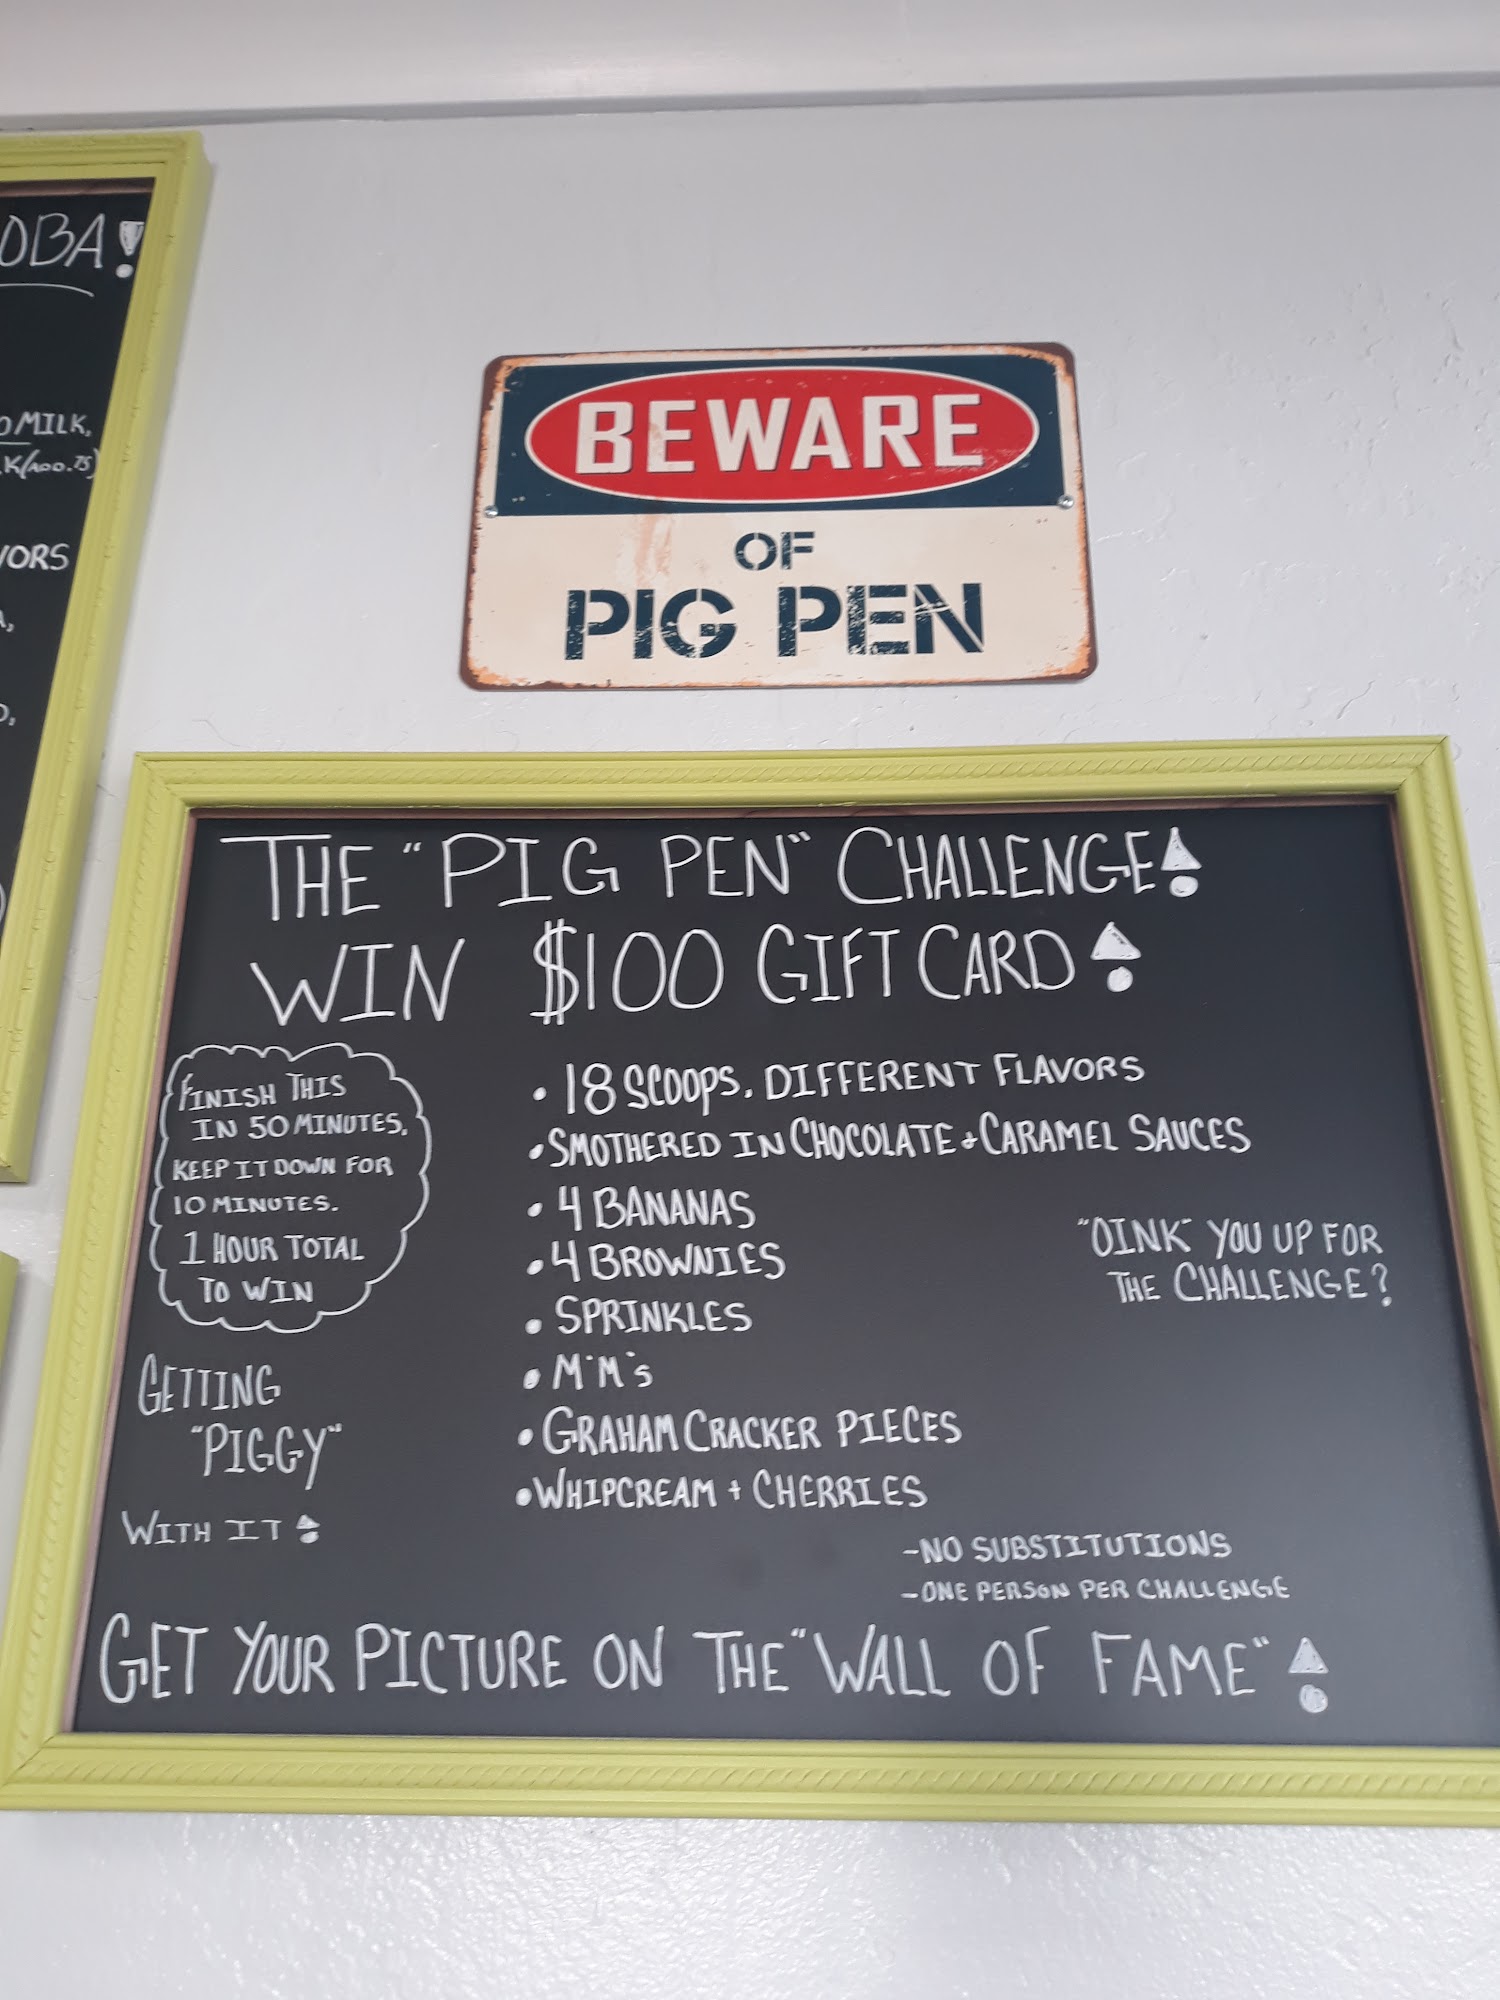 OBA!
MILK,
K(ADD .75)
BEWARE
OF
PIG PEN
THE "PIG PEN" CHALLENGE!
WIN $100 GIFT CARD!
FINISH THIS
IN 50 MINUTES.
KEEP IT DOWN FOR
10 MINUTES.
1 HOUR TOTAL
TO WIN
GETTING
"PIGGY"
WITH IT!
• 18 SCOOPS, DIFFERENT FLAVORS
• SMOTHERED IN CHOCOLATE & CARAMEL SAUCES
• 4 BANANAS
• 4 BROWNIES
• SPRINKLES
• M'M's
• GRAHAM CRACKER PIECES
• WHIPCREAM + CHERRIES
"OINK" YOU UP FOR
THE CHALLENGE?
-NO SUBSTITUTIONS
-ONE PERSON PER CHALLENGE
GET YOUR PICTURE ON THE "WALL OF FAME"!